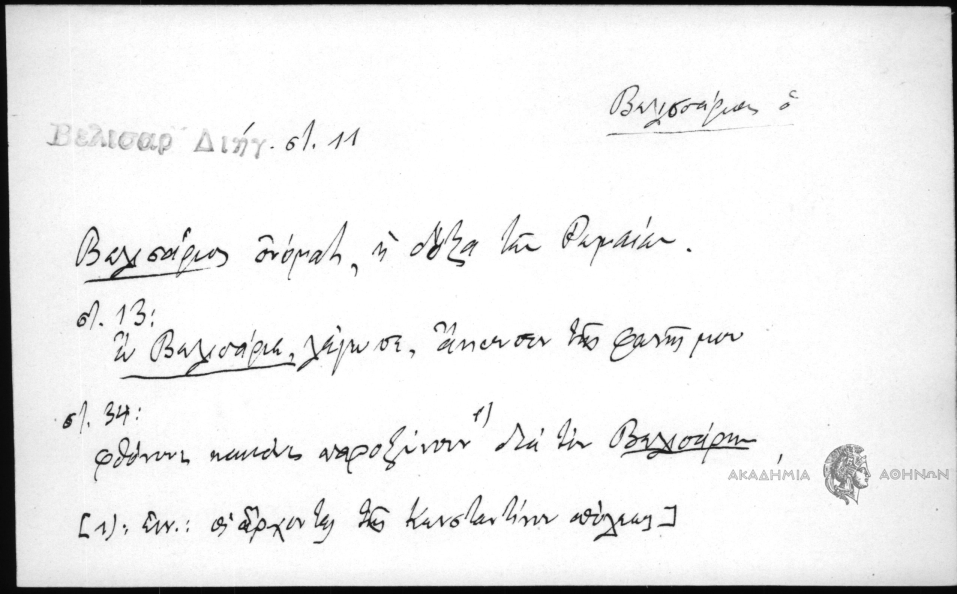 Βελισσάριος ὁ
Βελισαρ Διήγ. στ. 11
Βελισσάριος ὀνόματι, ἡ δόξα τῶν Ρωμαίων.
στ. 13:
Ὦ Βελισάριε, λέγω σε, ἄκουσον τῆς φωνῆς μου
στ. 34:
φθόνους κακίας παροξύνουν 1) διὰ τὸν Βελισάριον,
[1): ἐνν.: οἱ ἄρχοντες τῆς Κωνσταντίνου πόλεως]
ΑΚΑΔΗΜΙΑ ΑΘΗΝΩΝ